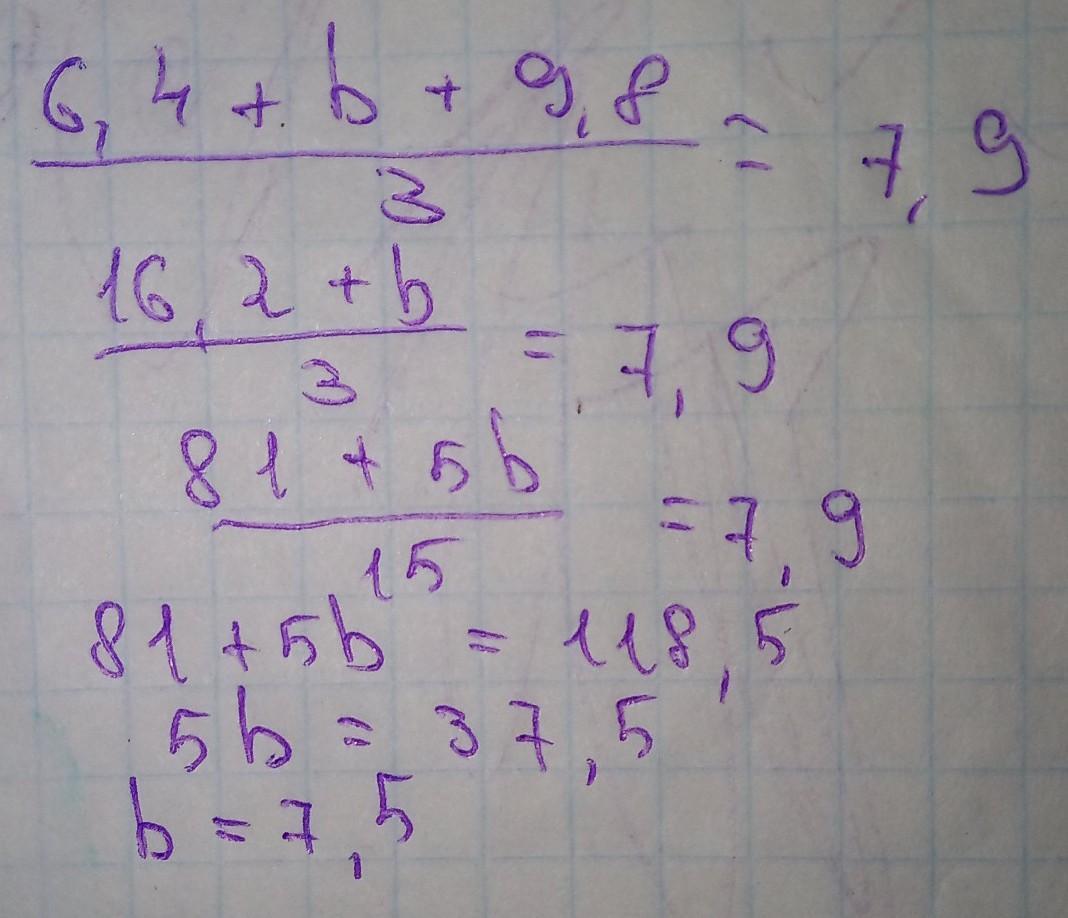 6,4 + b + 9,8 / 3 = 7,9
16,2 + b / 3 = 7,9
81 + 5b / 15 = 7,9
81 + 5b = 118,5
5b = 37,5
b = 7,5